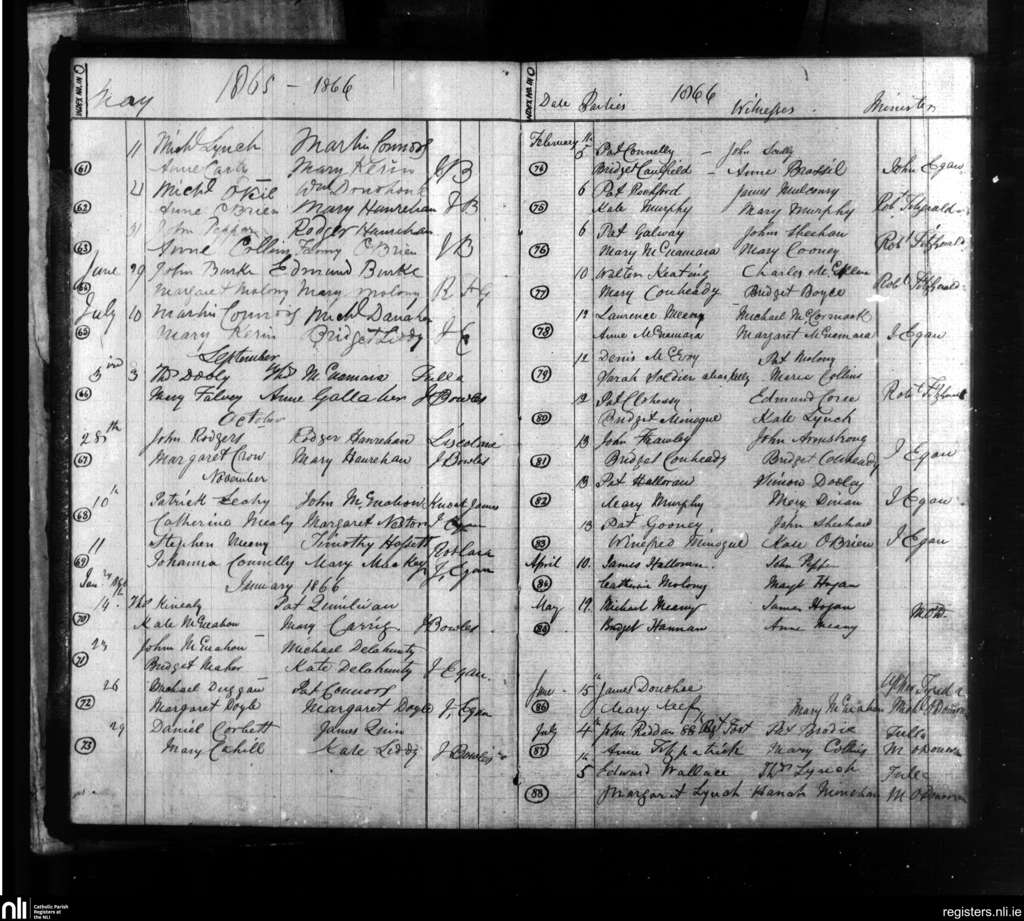 INDEX No. IN O
1865 - 1866
May
11 Michl Lynch Martin Connors
61 Anne Mary Kerin JB
21 Michl Wm Donohoe
62 Anne O Brien Mary Hanrehan JB
John Rodger Hanrehan
63 Anne Collins Fanny O Brien JB
June 29 John Burke Edmund Burke
64 Margaret Molony Mary Molony R F G
July 10 Martin Connors Michl Danaher
65 Mary Kerin Bridget Liddy J E
September
3 Thos Dooly Thos McNamara Tulla
66 Mary Falvey Anne Gallaher J Bowles
October
28th John Rodgers Rodger Hanrehan
67 Margaret Crow Mary Hanrehan J Bowles
November
10th Patrick Leahy John McMahon
68 Catherine Mealy Margaret J Egan
11 Stephen Meany Timothy
69 Johanna Connelly Mary Mackey J, Egan
January 1866
14. Thos Kinealy Pat Quinlivan
70 Kate McMahon Mary Carrig. J Bowles
23 John McMahon Michael Delahunty
71 Bridget Maher Kate Delahunty J Egan.
26 Michael Duggan Pat Connors
72 Margaret Doyle Margaret Doyle J, Egan
29 Daniel Corbett James Quin
73 Mary Cahill Kate Liddy J Bowles
INDEX No. IN O
1866
Date Parties Witnesses. Ministers
February 5th Pat Connelly - John Scully
74 Bridget Caulfield - Anne John Egan
6 Pat Rochford James Mulconry
75 Kate Murphy Mary Murphy Robt Fitzgerald
6 Pat Galway John Sheehan
76 Mary McNamara Mary Cooney Robt Fitzgerald
10 Walter Keating Charles
77 Mary Conheady Bridget Boyce Robt Fitzgerald
12 Laurence Meany Michael McCormack
78 Anne McNamara Margaret McNamara J Egan
12 Denis McEvoy Pat Molony
79 Sarah Soldier alias Kelly Maria Collins
12 Pat Clohessy Edmund Robt Fitzgerald
80 Bridget Minogue Kate Lynch
13 John Frawley John Armstrong
81 Bridget Conheady Bridget Conheady J Egan
13 Pat Halloran Simon Dooley
82 Mary Murphy Mary J Egan
13 Pat Gooney. John Sheehan
83 Winefred Minogue Kate O'Brien J Egan
April 10. James Halloran. John
84 Catherine Molony Margt Hogan
May 19. Michael Meany James Hogan
Bridget Hannan Anne Meany
June 15th James Donohoe
86 Mary Mary McMahon
July 4th John Pat Brodie Tulla
87 Anne Fitzpatrick Mary Collins
5th Edward Wallace Thos Lynch Tulla
88 Margaret Lynch Hanah
nli Catholic Parish
Registers at
the NLI
registers.nli.ie